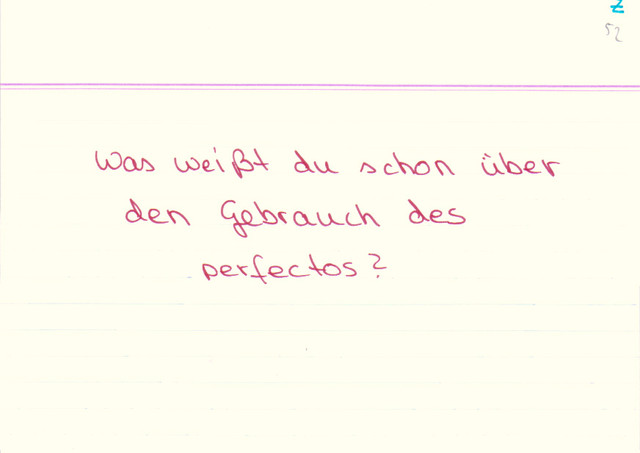 Z
52
Was weißt du schon über
den Gebrauch des
perfectos?